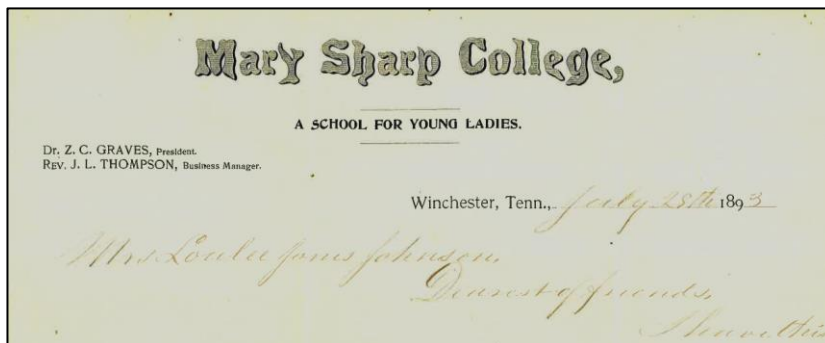 Mary Sharp College,
A SCHOOL FOR YOUNG LADIES.
Dr. Z. C. GRAVES, President.
REV. J. L. THOMPSON, Business Manager.
Winchester, Tenn., July 28th 1893
Mrs. Loulie Jones Johnson.
Dearest of friends,
I have this